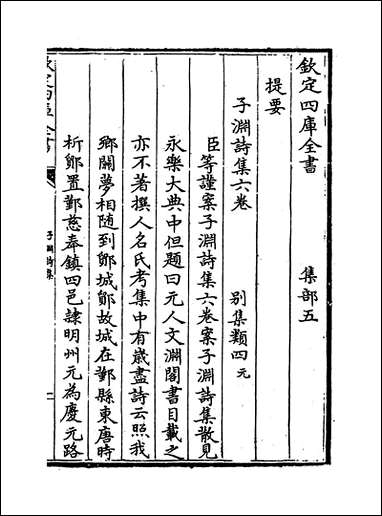 欽定四庫全書　集部五
提要
子淵詩集六卷　別集類四元
臣等謹案子淵詩集六卷案子淵詩集散見
永樂大典中但題曰元人文淵閣書目載之
亦不著撰人名氏考集中有歲盡詩云照我
鄉關夢相隨到鄮城鄮故城在鄞縣東唐時
析鄮置鄞慈奉鎮四邑隷明州元為慶元路
欽定四庫全書
子淵詩集
一